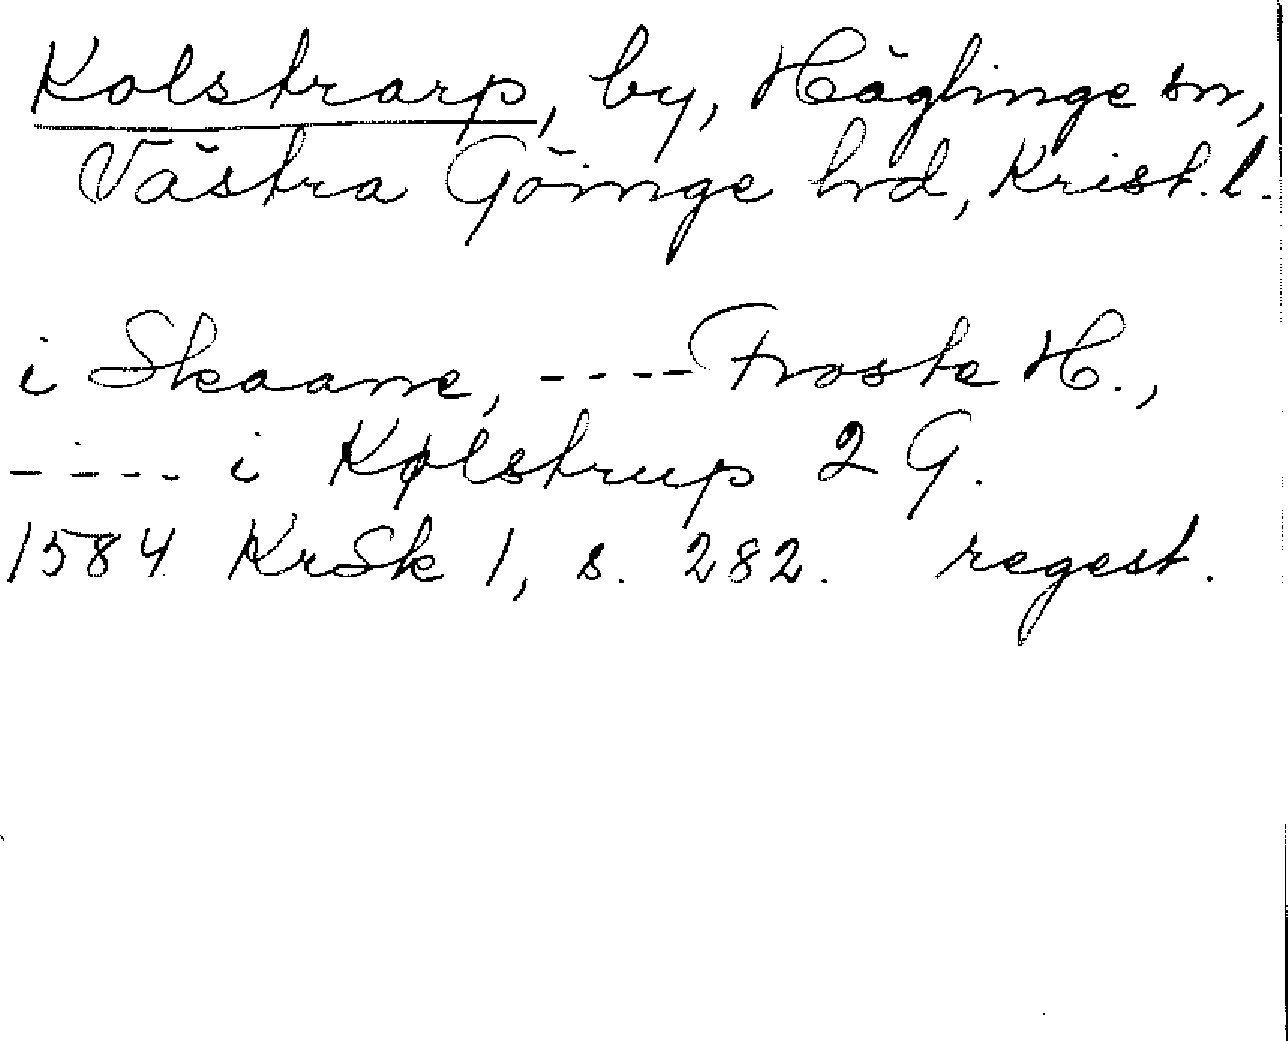 Kolstrarp, by, Häglinge sn,
Västra Göinge hrd, Krist. l.
i Skaane, ---- Froste H.,
---- i Kølstrup 2 G.
1584 KrSk 1, s. 282. regest.